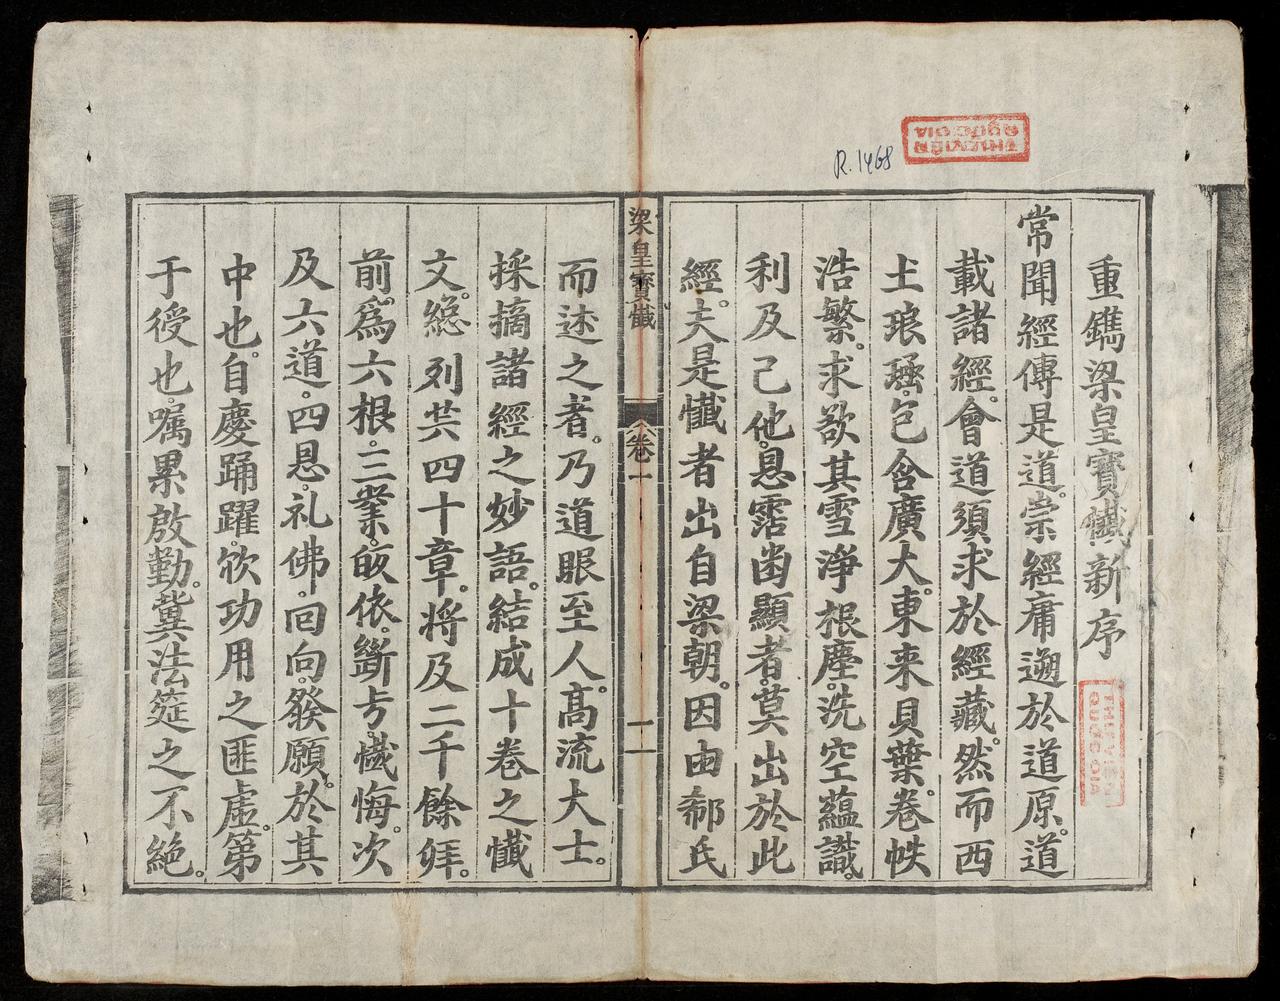 重鐫梁皇寶懺新序
常聞經傳是道。崇經庸遡於道原。道
載諸經。會道須求於經藏。然而西
土琅琊。包含廣大。東来貝葉。卷帙
浩繁。求欲其雪淨根塵。洗空蘊識。
利及己他。恩霑幽顯者。莫出於此
經。夫是懺者出自梁朝。因由郗氏
梁皇寶懺
卷一
一
而述之者。乃道眼至人。高流大士。
採摘諸經之妙語。結成十卷之懺
文。総列共四十章。将及二千餘拜。
前爲六根。三業。皈依。斷疑。懺悔。次
及六道。四恩。礼佛。回向。發願。於其
中也。自慶踊躍。欣功用之匪虚。第
于後也。嘱累啟勤。冀法筵之不絶。
R.1468
THƯ VIỆN QUỐC GIA
THƯ VIỆN QUỐC GIA